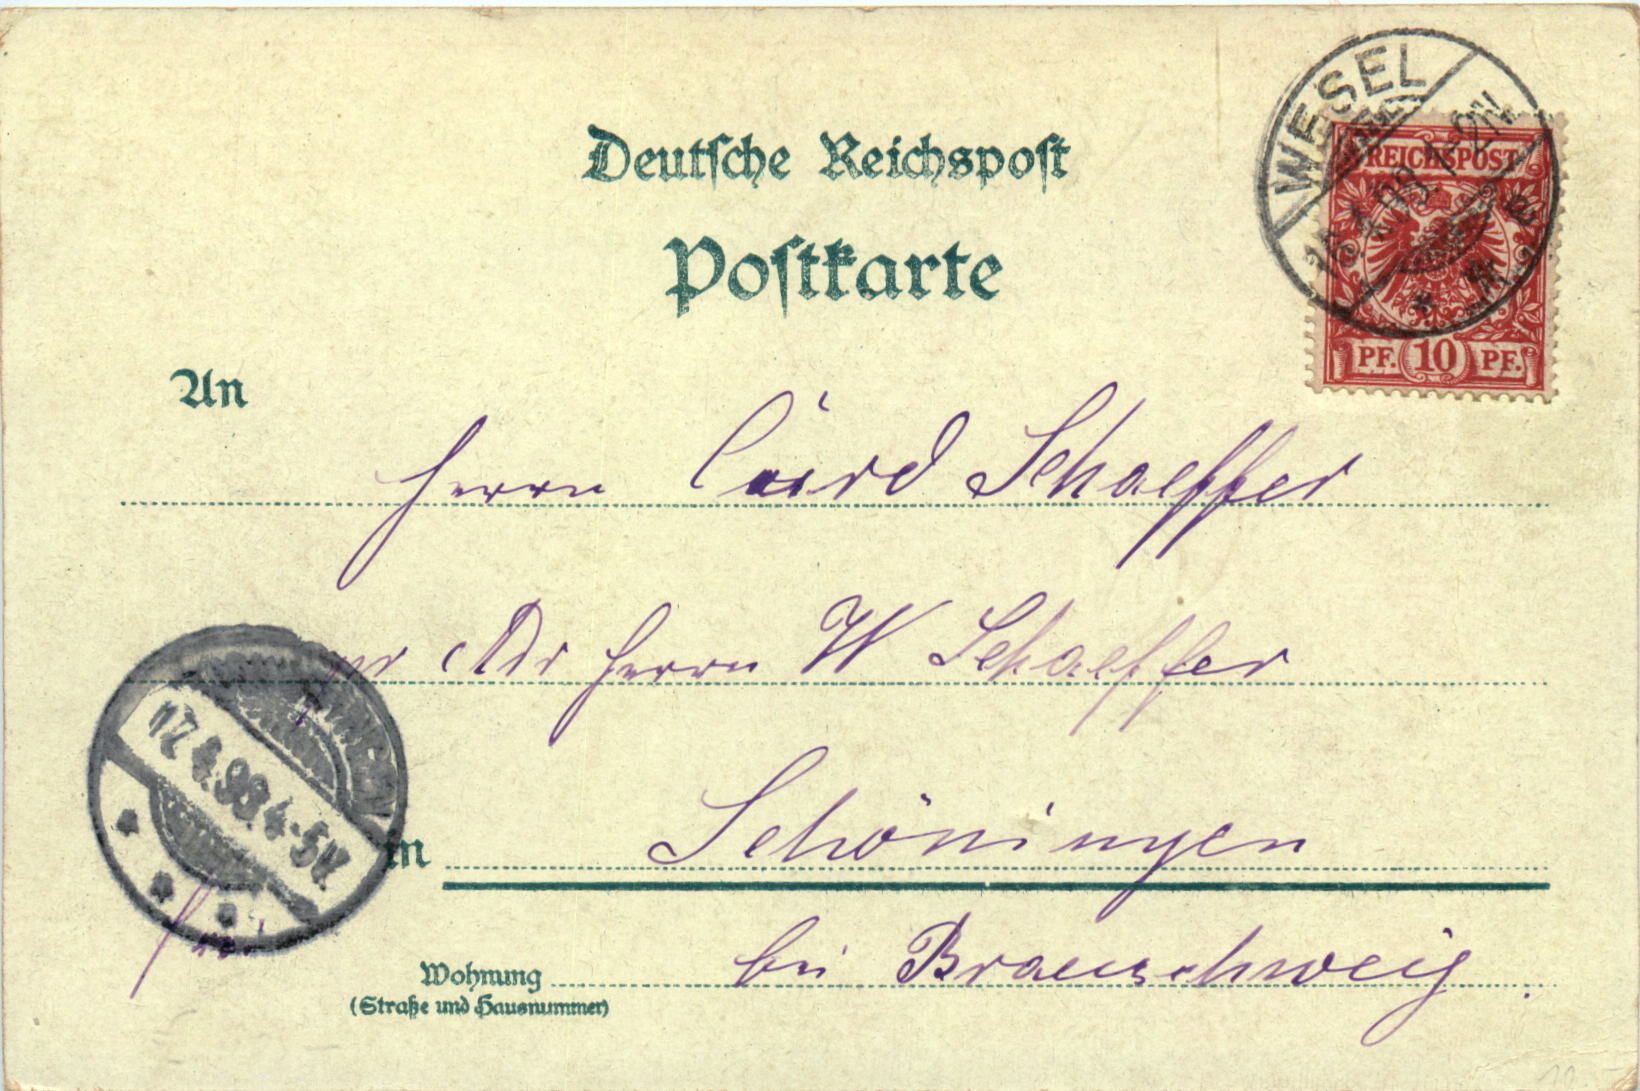 Deutsche Reichspost
Postkarte
WESEL
1-2N
REICHSPOST
PF. 10 PF.
An
Herrn Schaeffer
pr Adr Herrn W Schaeffer
17.4.98.4-5N.
in Schöningen
frei
Wohnung bei Braunschweig.
(Straße und Hausnummer)